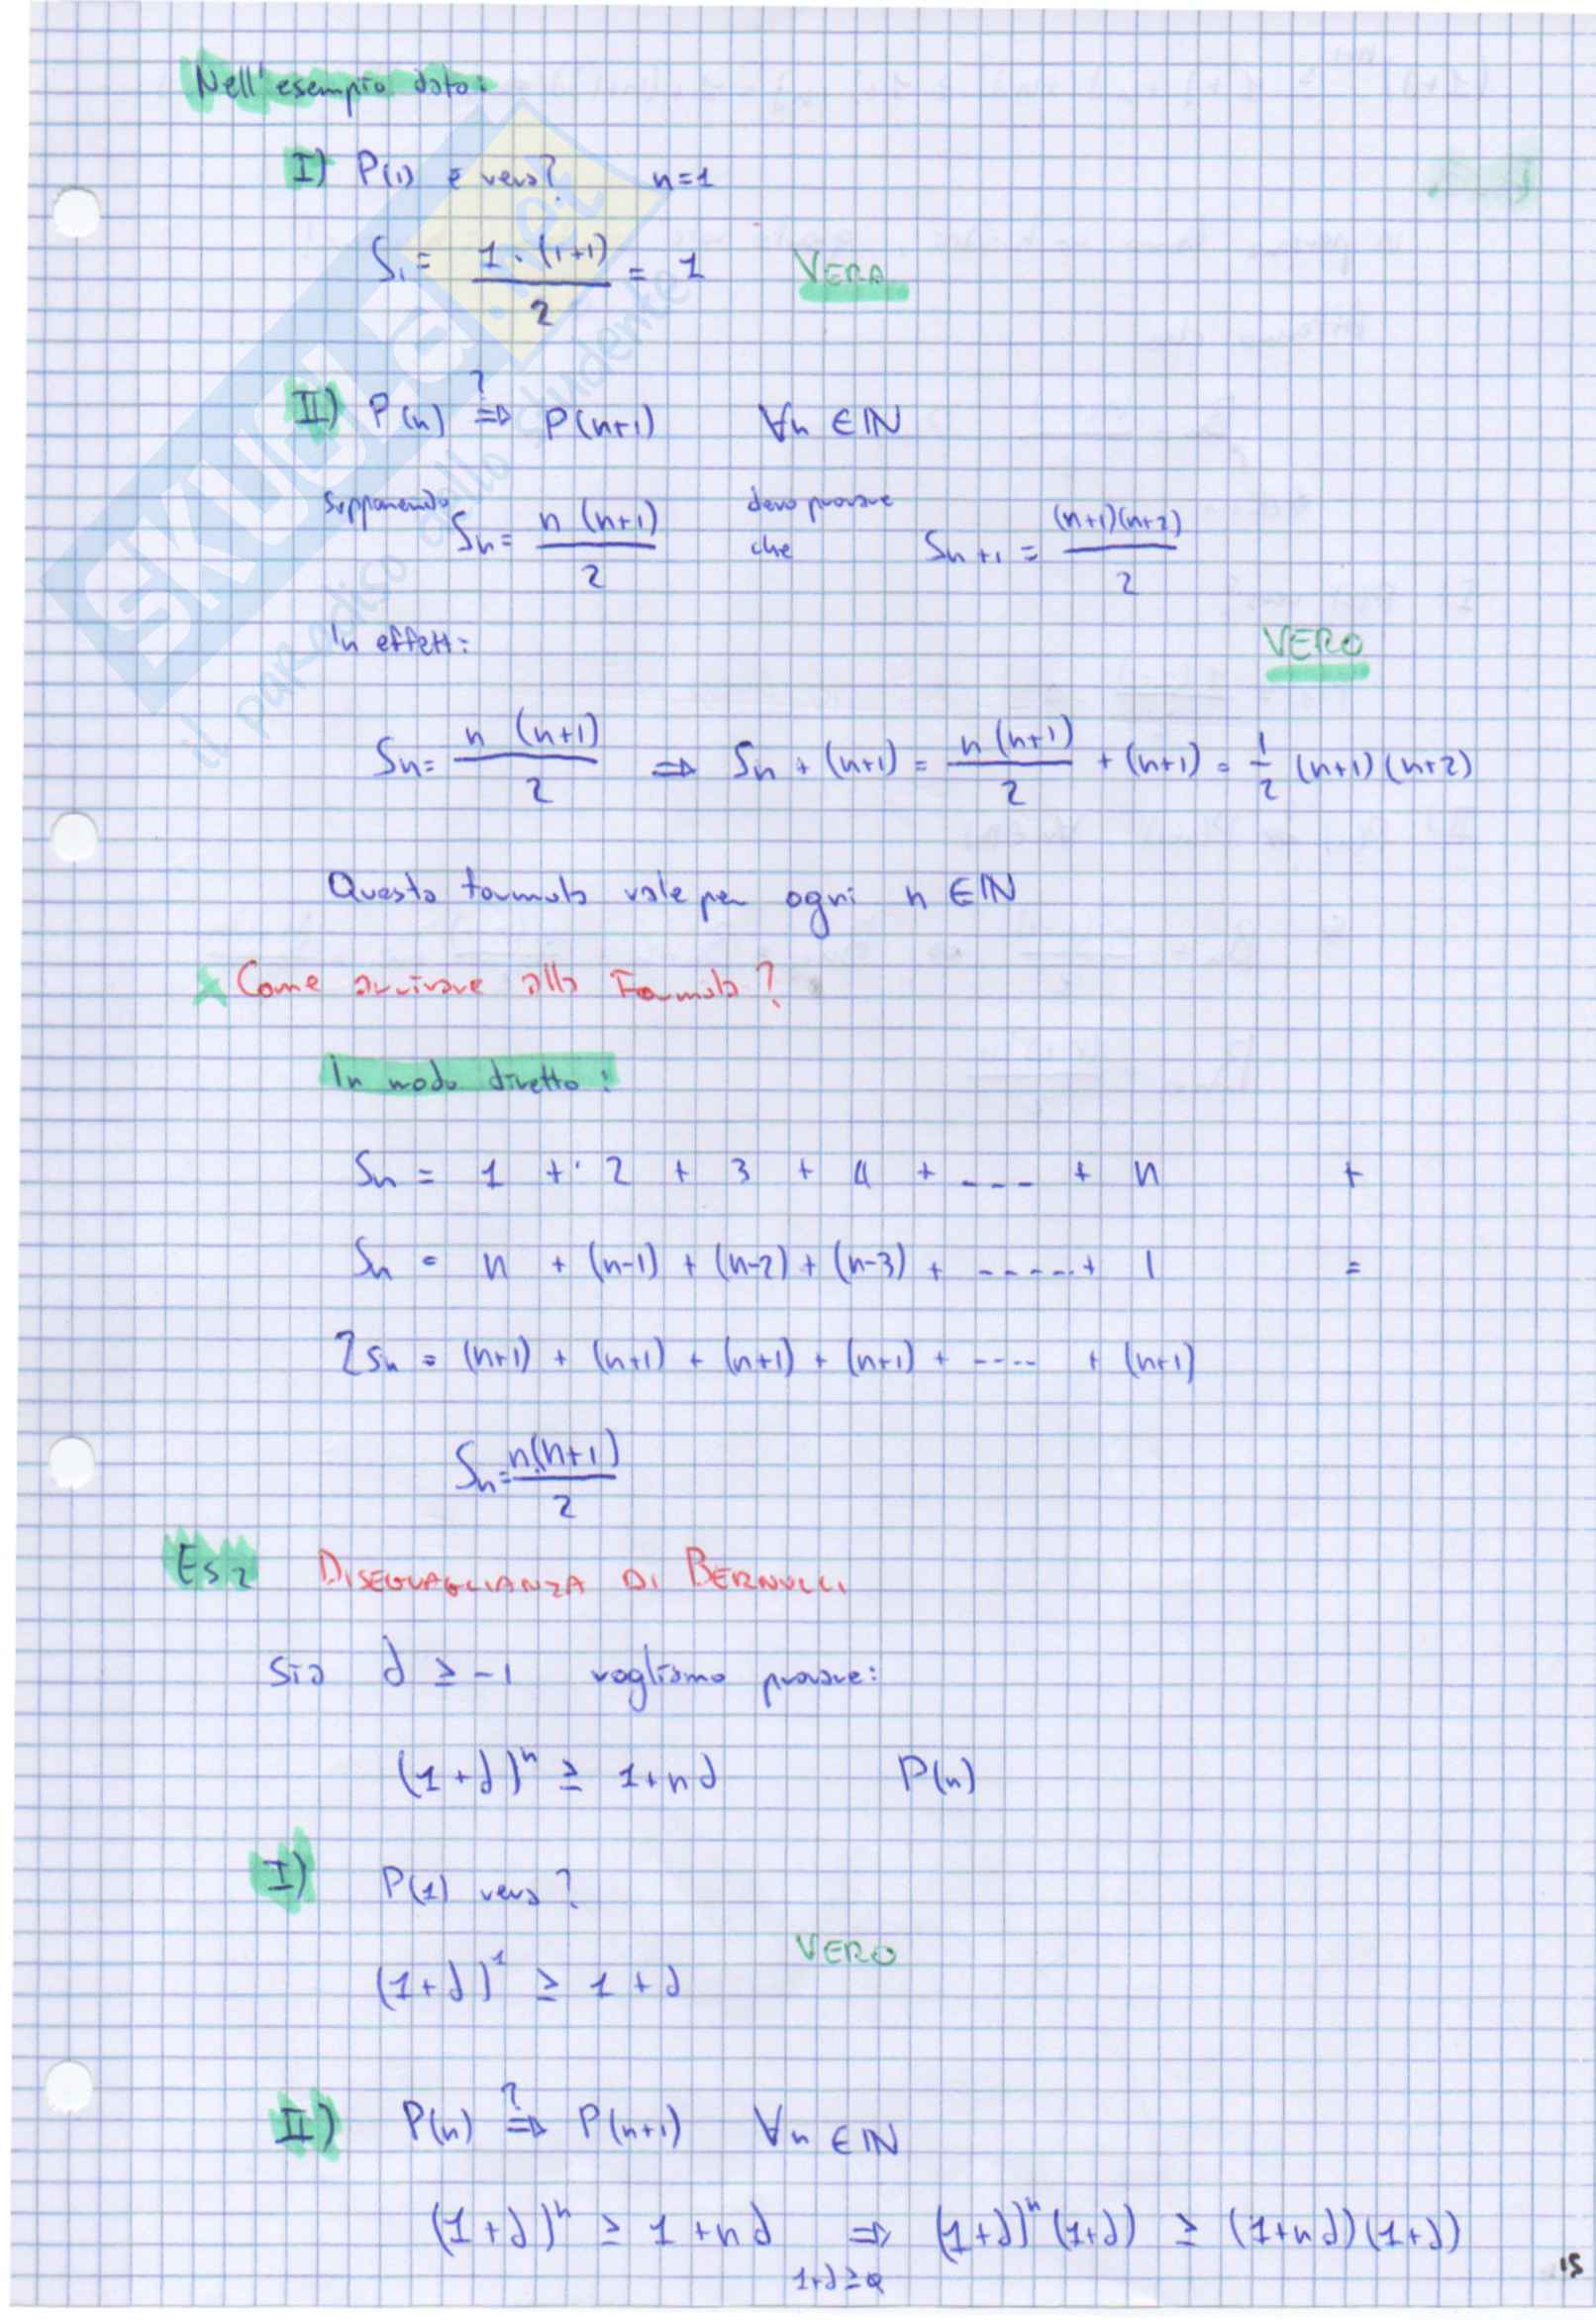 Nell'esempio dato:
I) P(1) è vera? n=1
S₁ = 1·(1+1)/2 = 1 VERA
II) P(n) ?⇒ P(n+1) ∀n ∈ ℕ
Supponendo Sn = n(n+1)/2 devo provare che Sn+1 = (n+1)(n+2)/2
In effetti: VERO
Sn = n(n+1)/2 ⇒ Sn + (n+1) = n(n+1)/2 + (n+1) = 1/2 (n+1)(n+2)
Questa formula vale per ogni n ∈ ℕ
Come arrivare alla Formula?
In modo diretto:
Sn = 1 + 2 + 3 + 4 + --- + n +
Sn = n + (n-1) + (n-2) + (n-3) + -----+ 1 =
2Sn = (n+1) + (n+1) + (n+1) + (n+1) + ---- + (n+1)
Sn = n(n+1)/2
Es 2 DISEGUAGLIANZA DI BERNULLI
Sia a ≥ -1 vogliamo provare:
(1+a)ⁿ ≥ 1+na P(n)
I) P(1) vera?
(1+a)¹ ≥ 1+a VERO
II) P(n) ?⇒ P(n+1) ∀n ∈ ℕ
(1+a)ⁿ ≥ 1+na ⇒ (1+a)ⁿ(1+a) ≥ (1+na)(1+a)
1+a≥0
15
SKUOLA.net
il paradiso dello studente